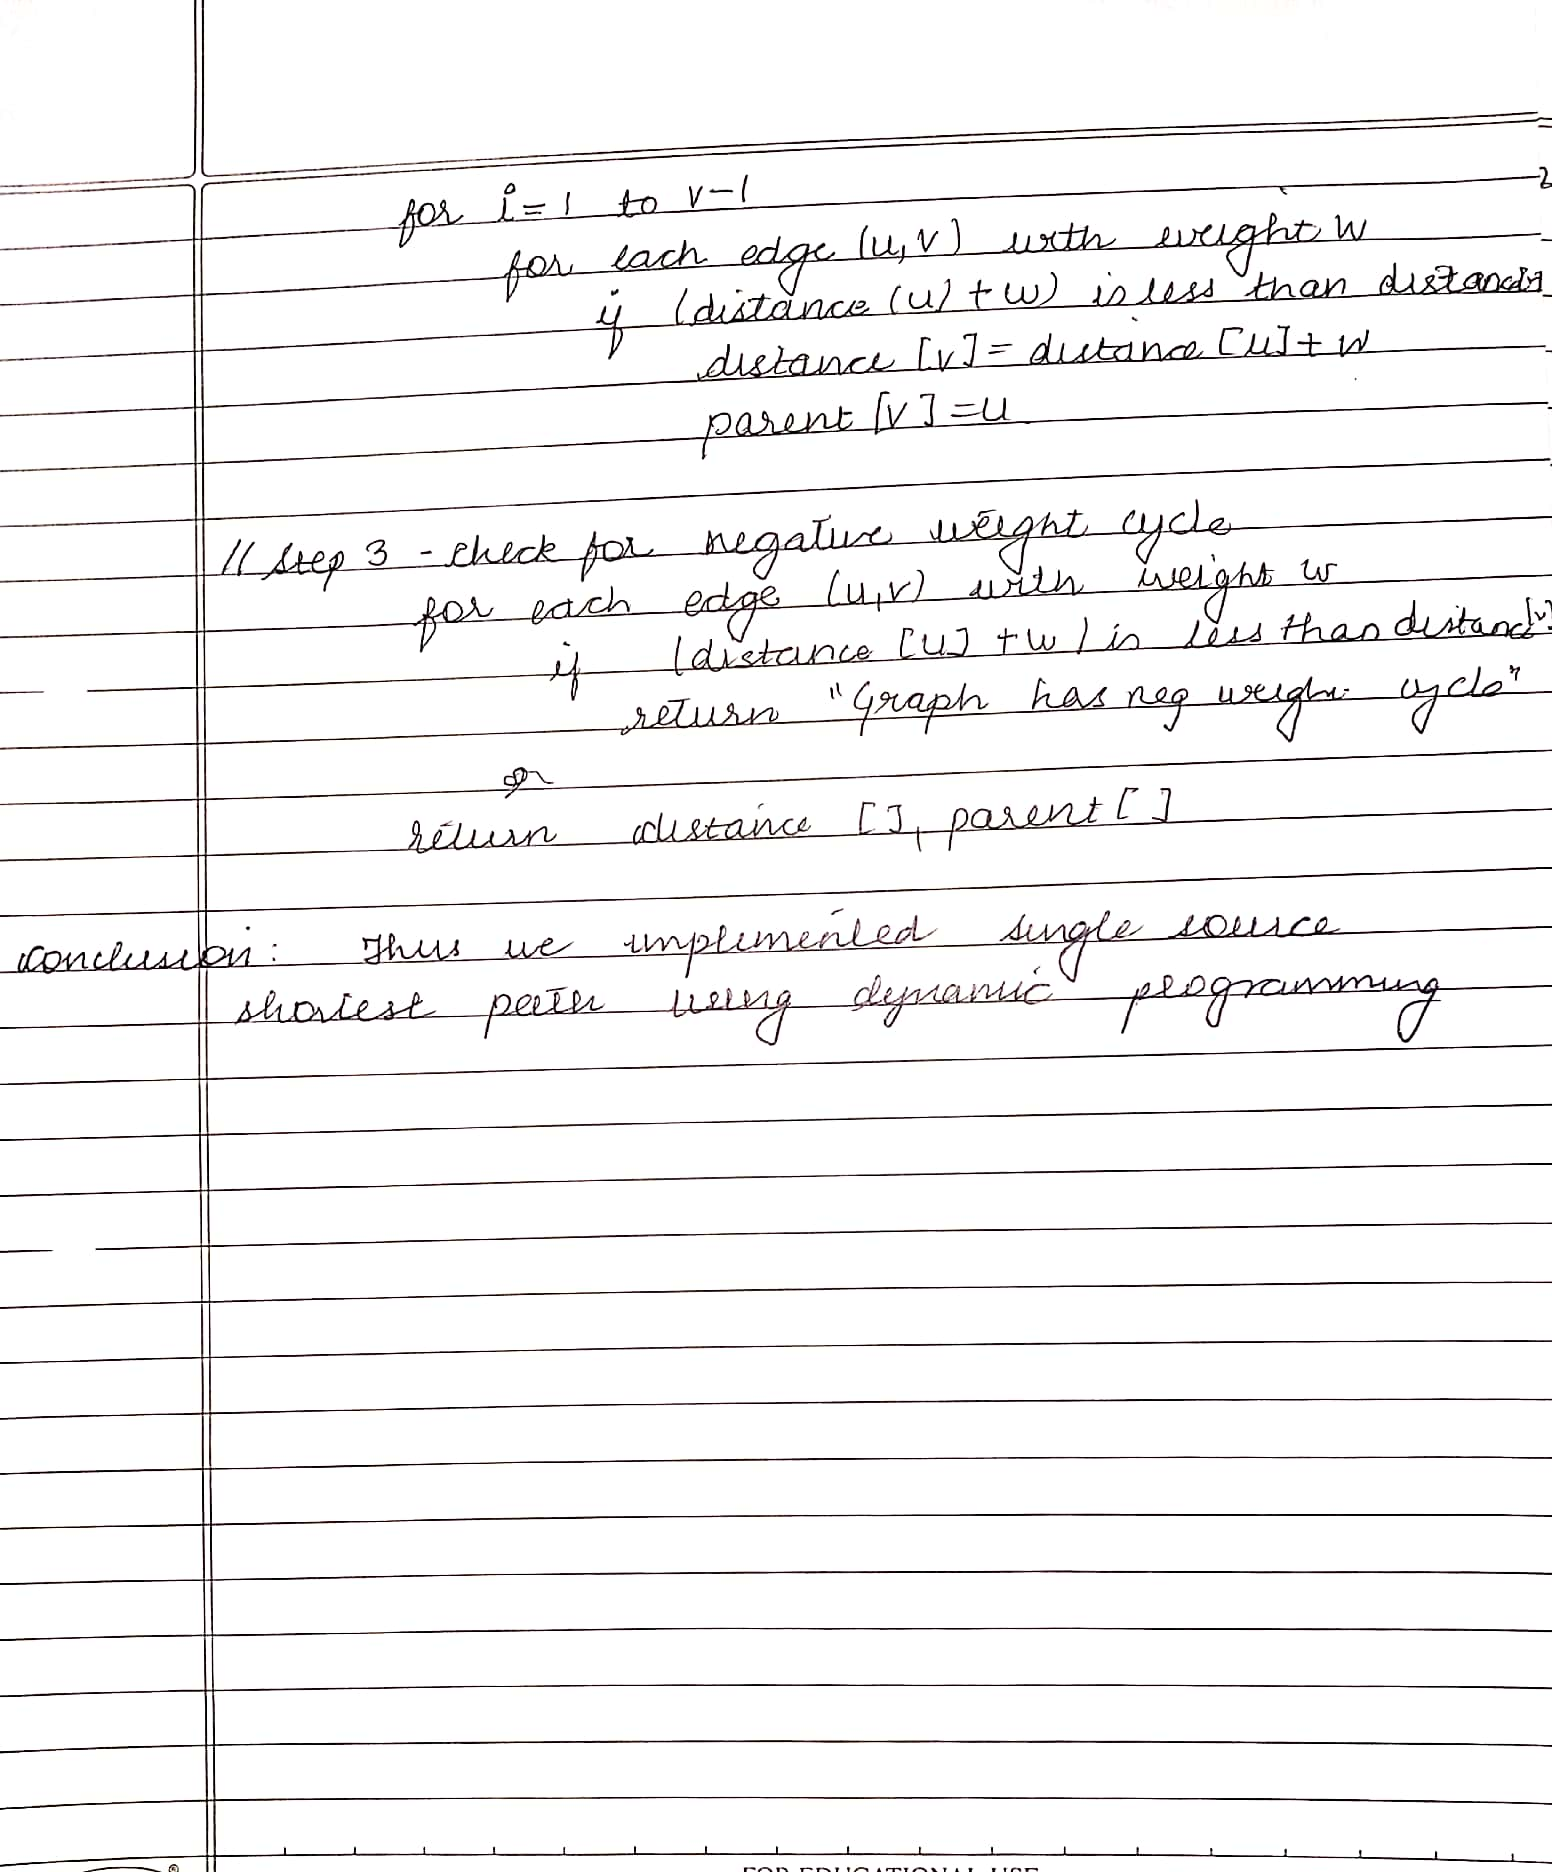 2
for i=1 to v-1
for each edge (u,v) with weight w
if (distance (u) + w) is less than distance[v]
distance [v] = distance [u] + w
parent [v] = u
// Step 3 - check for negative weight cycle
for each edge (u,v) with weight w
if (distance [u] + w) is less than distance[v]
return "Graph has neg weight cycle"
or
return distance [], parent []
conclusion: Thus we implemented single source
shortest path using dynamic programming
FOR EDUCATIONAL USE